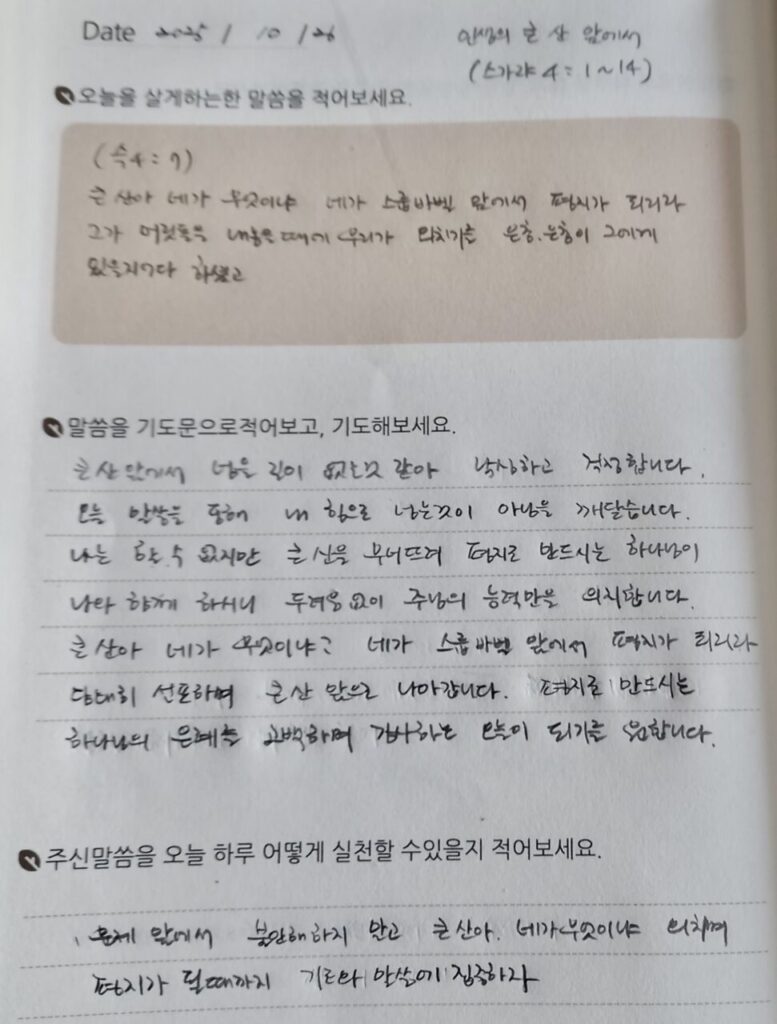 Date 2025 / 10 / 26
인생의 큰 산 앞에서
(스가랴 4 : 1 ~ 14)
오늘을 살게하는한 말씀을 적어보세요.
(슥4 : 7)
큰 산아 네가 무엇이냐 네가 스룹바벨 앞에서 평지가 되리라
그가 머릿돌을 내놓을 때에 무리가 외치기를 은총. 은총이 그에게
있을지어다 하셨고
말씀을 기도문으로적어보고, 기도해보세요.
큰 산 앞에서 넘을 길이 없는것 같아 낙심하고 걱정합니다.
오늘 말씀을 통해 내 힘으로 넘는것이 아님을 깨달습니다.
나는 할 수 없지만 큰 산을 무너뜨려 평지로 만드시는 하나님이
나와 함께 하시니 두려움 없이 주님의 능력만을 의지합니다.
큰 산아 네가 무엇이냐? 네가 스룹바벨 앞에서 평지가 되리라
담대히 선포하며 큰 산 앞으로 나아갑니다. 평지로 만드시는
하나님의 은혜를 고백하며 감사하는 오늘이 되기를 원합니다.
주신말씀을 오늘 하루 어떻게 실천할 수있을지 적어보세요.
문제 앞에서 불안해하지 말고 큰 산아. 네가 무엇이냐 외치며
평지가 될때까지 기도와 말씀에 집중하자